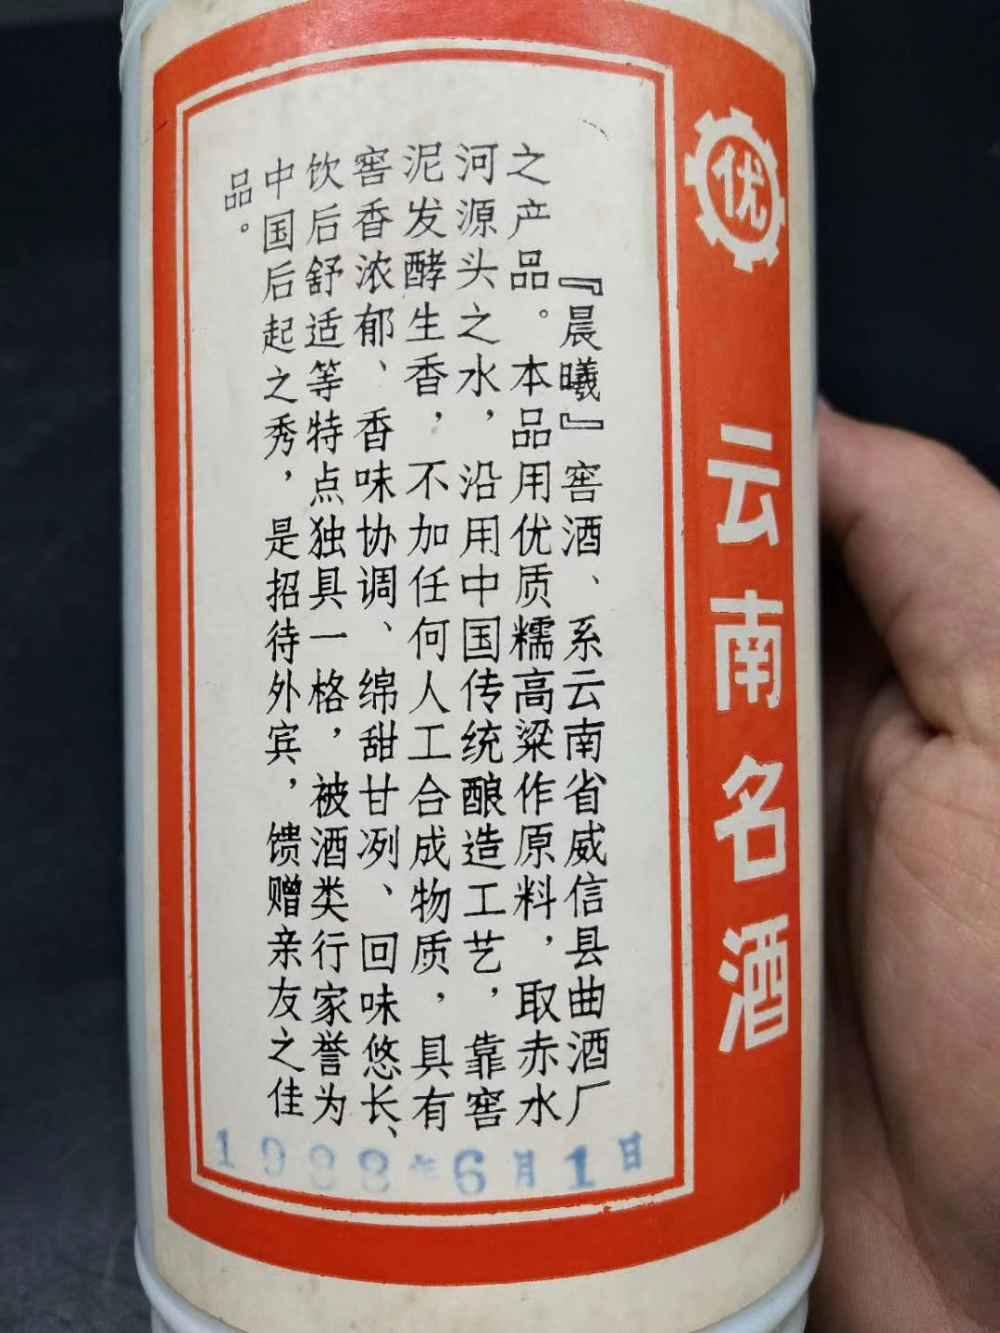 优
云南名酒
『晨曦』窖酒、系云南省威信县曲酒厂
之产品。本品用优质糯高粱作原料，取赤水
河源头之水，沿用中国传统酿造工艺，靠窖
泥发酵生香，不加任何人工合成物质，具有
窖香浓郁、香味协调、绵甜甘冽、回味悠长、
饮后舒适等特点独具一格，被酒类行家誉为
中国后起之秀，是招待外宾，馈赠亲友之佳
品。
1988年6月1日